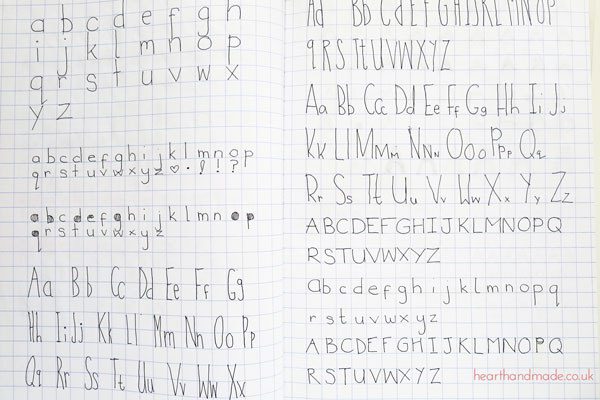 a b c d e f g h
i j k l m n o p
q r s t u v w x
y z
a b c d e f g h i j k l m n o p
q r s t u v w x y z ♡ · ! ! ?
a b c d e f g h i j k l m n o p
q r s t u v w x y z
Aa Bb Cc Dd Ee Ff Gg
Hh Ii Jj Kk Ll Mm Nn Oo Pp
Qq Rr Ss Tt Uu Vv Ww Xx
Ad Bb C d E F G H I J K L M N O P
q R S Tt U V W X Y Z
Aa Bb Cc Dd Ee Ff Gg Hh Ii Jj
Kk Ll Mmm Nnn Ooo Ppp Qq
Rr Ss Tt Uu Vv Ww Xx Yy Zz
A B C D E F G H I J K L M N O P Q
R S T U V W X Y Z
a b c d e f g h i j k l m n o p q
r s t u v w x y z
A B C D E F G H I J K L M N O P Q
R S T U V W X Y Z
hearthandmade.co.uk